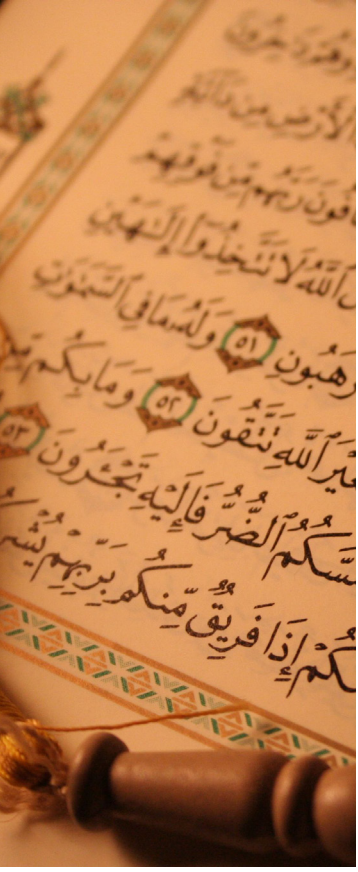 وَهُمْ دَٰخِرُونَ
ٱلْأَرْضِ مِن دَآبَّةٍ
رَبَّهُم مِّن فَوْقِهِمْ
ٱللَّهُ لَا تَتَّخِذُوٓا۟ إِلَـٰهَيْنِ
رْهَبُونِ ٥١ وَلَهُۥ مَا فِى ٱلسَّمَـٰوَٰتِ
غَيْرَ ٱللَّهِ تَتَّقُونَ ٥٢ وَمَا بِكُم
سَّكُمُ ٱلضُّرُّ فَإِلَيْهِ تَجْـَٔرُونَ ٥٣
كُمْ إِذَا فَرِيقٌ مِّنكُم بِرَبِّهِمْ يُشْرِ